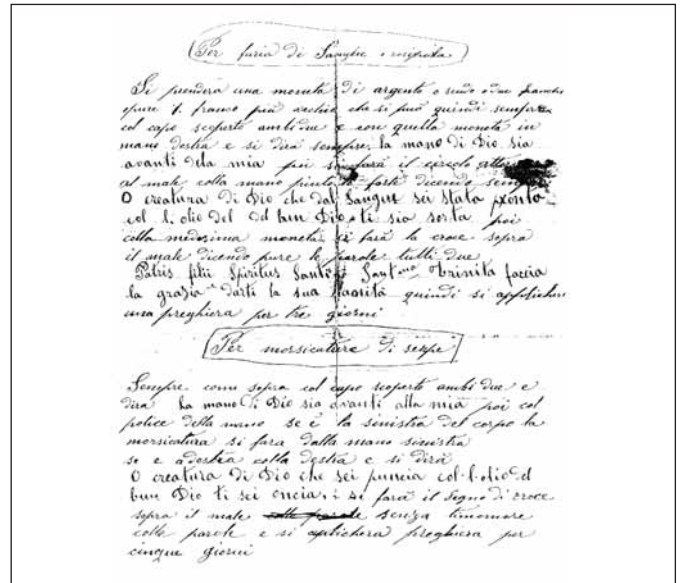 Per furia di Sangue e risipola
Si prenderà una moneta di argento o scudo o due franchi
opure 1. franco più vechio che si può quindi sempre
col capo scoperto ambi due e con quella moneta in
mano destra e si dirà sempre. la mano di Dio sia
avanti dela mia poi si farà il circolo
al male colla mano forte dicendo sempre
O creatura di Dio che dal Sangue sei stata
col l. olio del del bun Dio ti sia poi
colla medesima moneta si farà la croce sopra
il male dicendo pure le parole tutti due
Patris filii Spiritus Santi Trinita faccia
la grazia darti la sua quindi si
una preghiera per tre giorni
Per morsicature di serpe
Sempre come sopra col capo scoperto ambi due e
dira la mano di Dio sia avanti alla mia poi col
police della mano se è la sinistra del corpo la
morsicatura si fara dalla mano sinistra
se e a destra colla destra e si dirà
O creatura di Dio che sei puncia col l. olio d
bun Dio ti sei oncia, i si farà il Segno di croce
sopra il male senza
colle parole e si preghiera per
cinque giorni